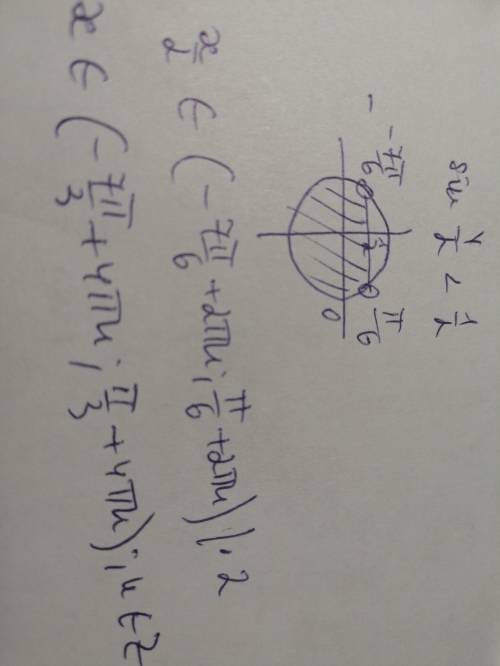 sin x/2 < 1/2
- -7π/6 1/2 π/6
0
x/2 ∈ (-7π/6 + 2πn; π/6 + 2πn) |·2
x ∈ (-7π/3 + 4πn; π/3 + 4πn); n ∈ Z